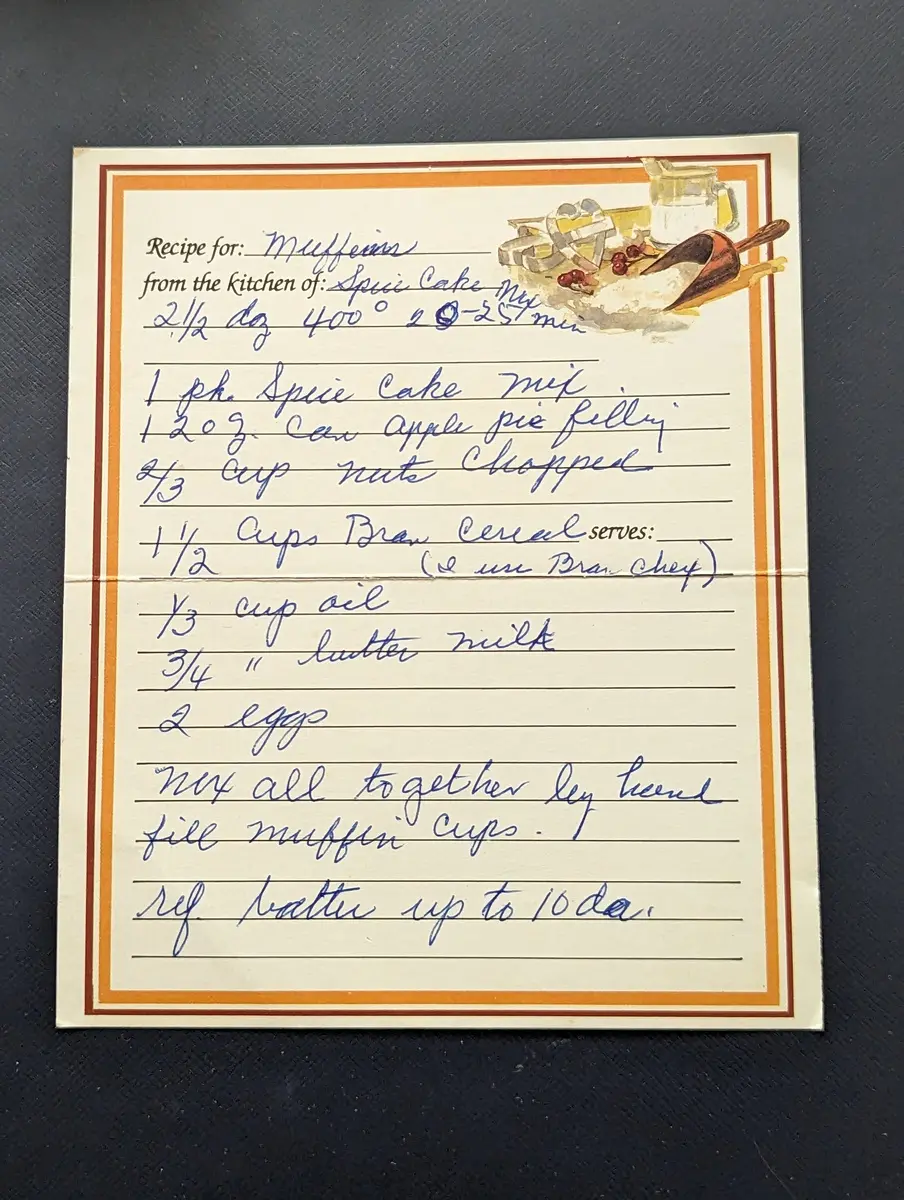 Recipe for: Muffins
from the kitchen of: Spice Cake Mix
2 1/2 doz 400° 20-25 min
1 pk. Spice Cake Mix.
1 20 oz. Can apple pie filling
2/3 cup nuts Chopped
1 1/2 Cups Bran Cereal serves:
(I use Bran Chex)
1/3 cup oil
3/4 " butter milk
2 eggs
Mix all together by hand
fill muffin cups.
ref. batter up to 10 da.